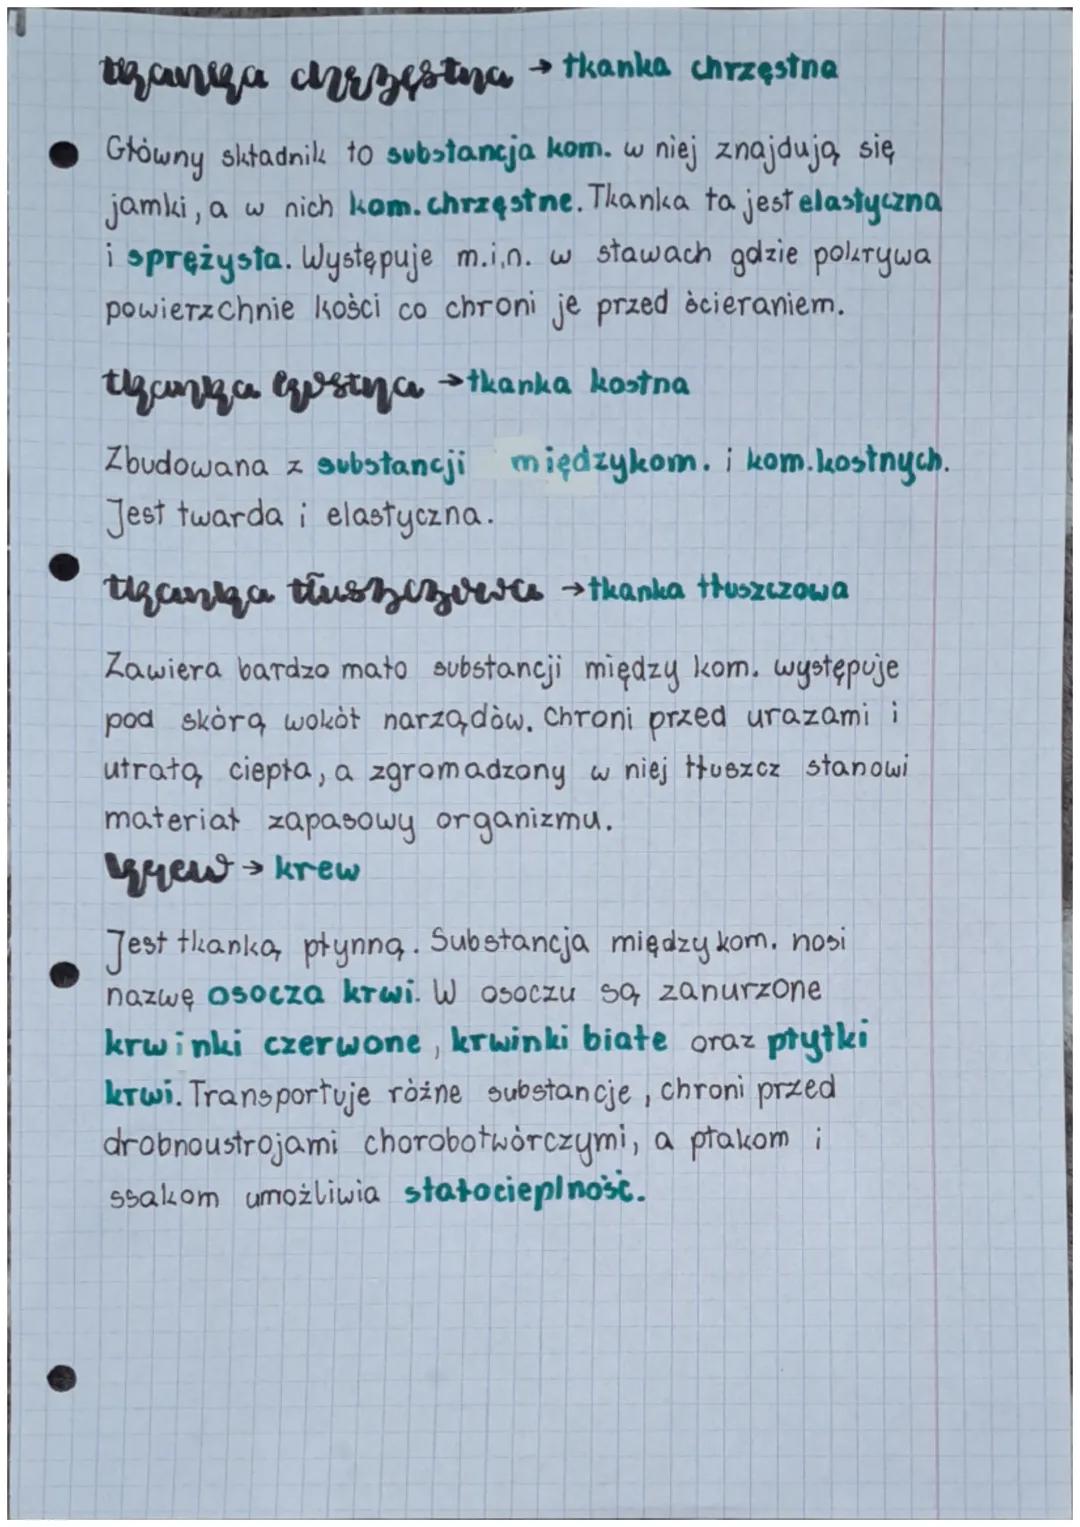 tkanka chrzęstna → tkanka chrzęstna
Główny składnik to substancja kom. w niej znajdują się
jamki, a w nich kom. chrzęstne. Tkanka ta jest elastyczna
i sprężysta. Występuje m.i.n. w stawach gdzie pokrywa
powierzchnie kości co chroni je przed ścieraniem.
tkanka kostna → tkanka kostna
Zbudowana z substancji międzykom. i kom. kostnych.
Jest twarda i elastyczna.
tkanka tłuszczowa → tkanka tłuszczowa
Zawiera bardzo mało substancji między kom. występuje
pod skórą wokół narządów. Chroni przed urazami i
utratą ciepła, a zgromadzony w niej tłuszcz stanowi
materiał zapasowy organizmu.
krew → krew
Jest tkanką płynną. Substancja między kom. nosi
nazwę osocza krwi. W osoczu są zanurzone
krwinki czerwone, krwinki białe oraz płytki
krwi. Transportuje różne substancje, chroni przed
drobnoustrojami chorobotwórczymi, a ptakom i
ssakom umożliwia stałocieplność.